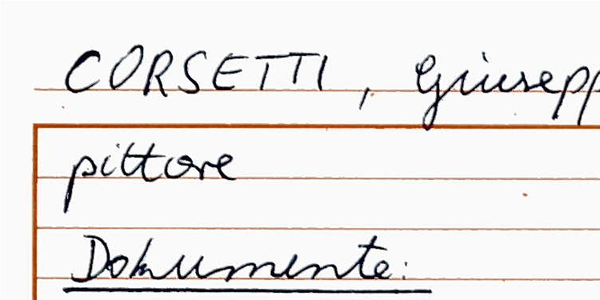 CORSETTI, Giusepp
pittore
Dokumente: